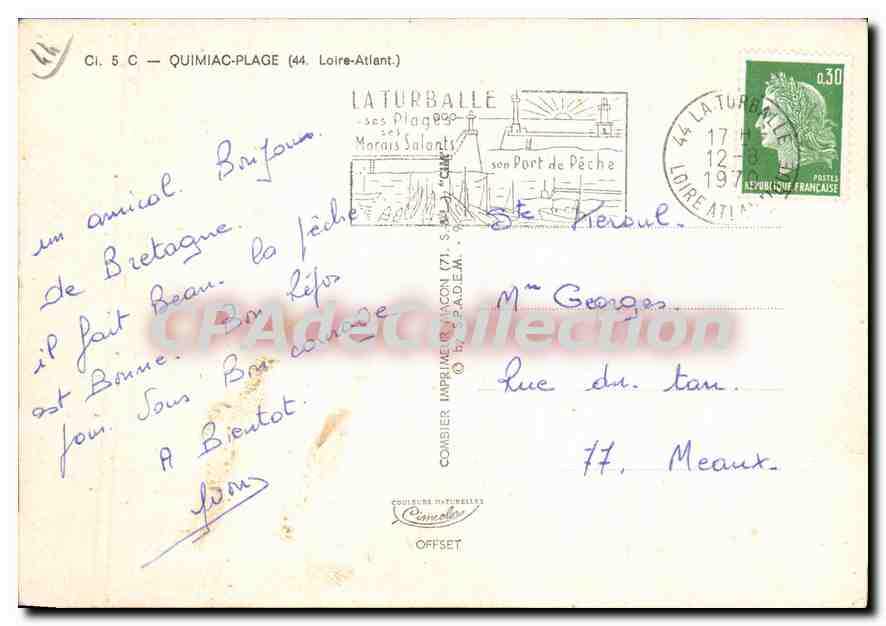 44
Ci. 5 C — QUIMIAC-PLAGE (44. Loire-Atlant.)
LA TURBALLE
ses Plages
ses
Marais Salants
son Port de Pêche
44 LA TURBALLE
17 H
12-8
1970
LOIRE ATLANTIQUE
0,30
POSTES
REPUBLIQUE FRANÇAISE
un amical. Bonjour.
de Bretagne.
il fait Beau. la pêche
est Bonne. Bon Repos
pour. Vous Bon courage
A Bientot.
Yvon
COMBIER IMPRIMEUR MACON (71. S.-&-L.) "CIM"
© by S.P.A.D.E.M.
Ste
Mme Georges.
Rue du tan.
77. Meaux.
CPAdeCollection
COULEURS NATURELLES
Cimcolor
OFFSET